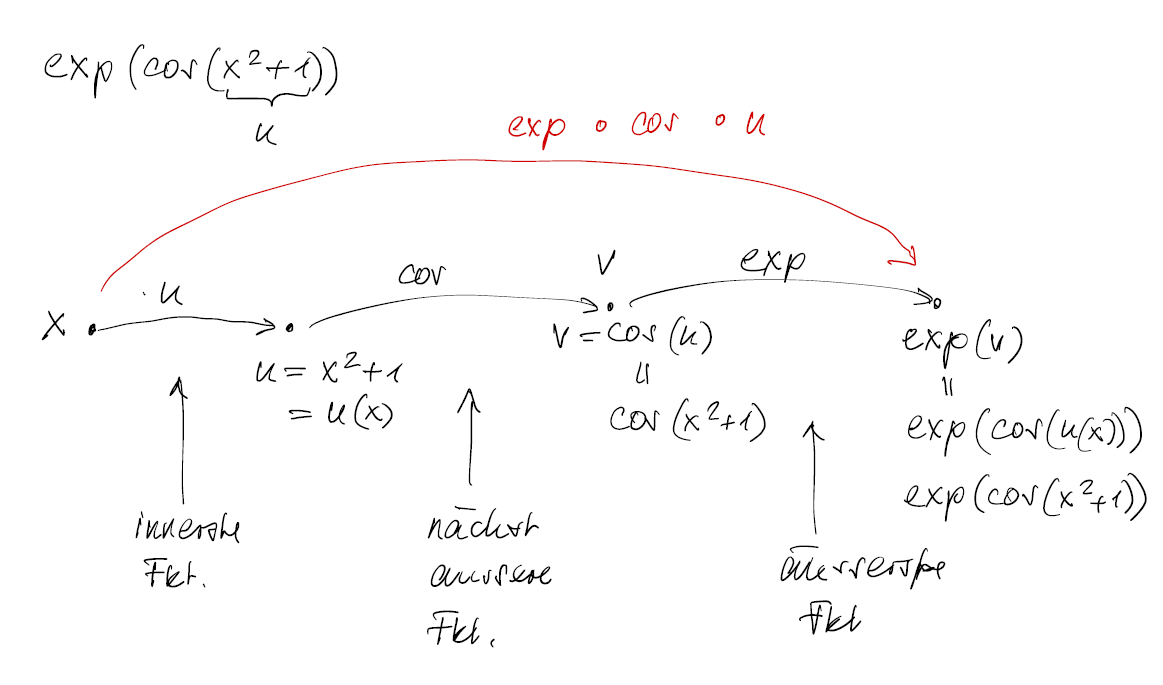 exp(cos(x²+1))
u
exp ∘ cos ∘ u
x
u
cos
v
exp
u = x²+1
= u(x)
v = cos(u)
=
cos(x²+1)
exp(v)
=
exp(cos(u(x)))
exp(cos(x²+1))
innerste
Fkt.
nächst
äussere
Fkt.
äusserste
Fkt